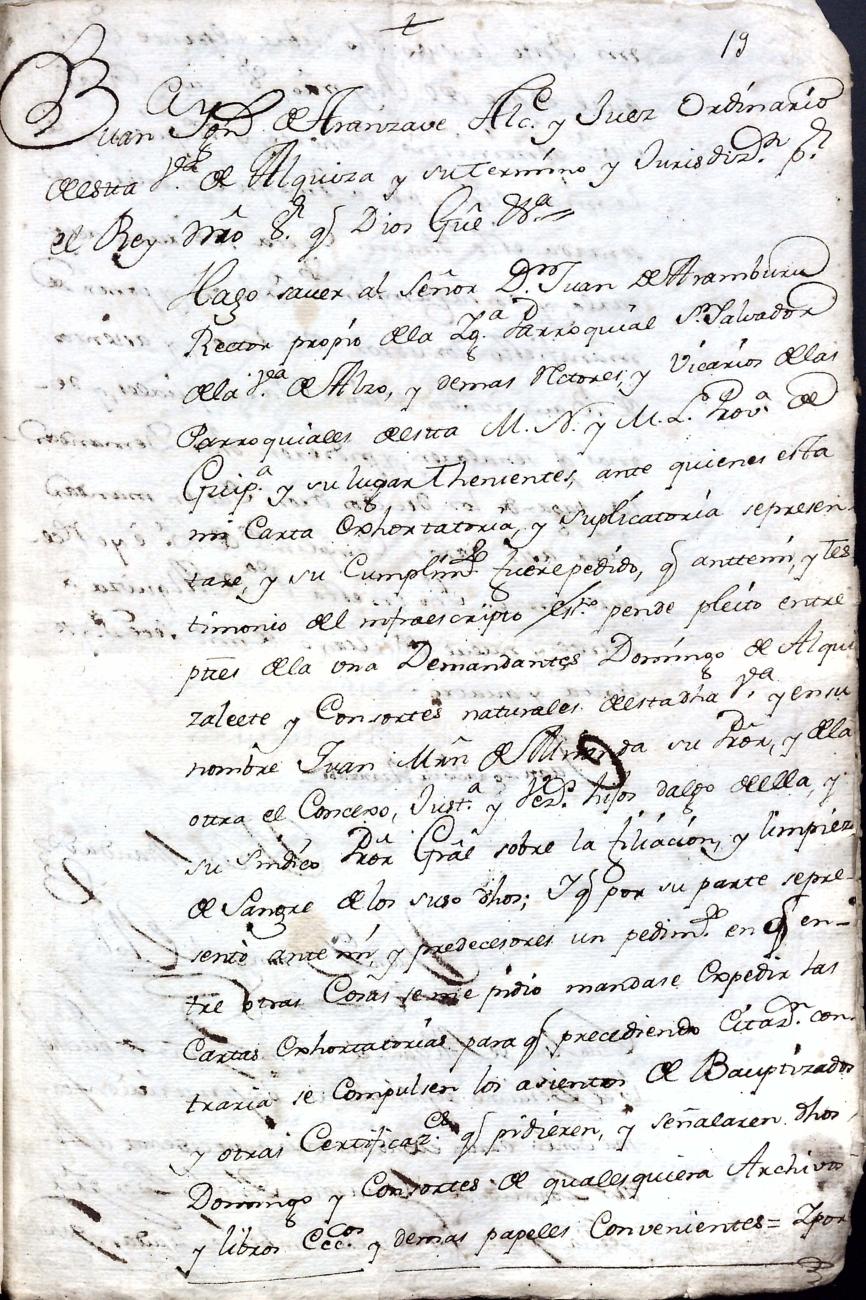 19
Juan Ygn.º de Aranzave Alc.e y Juez Ordinario
de esta V.a de Alquiza y su termino y Jurisdiz.n p.r
el Rey nr̃o S.r q̃ Dios Gũe &.a
Hago saver al señor D.n Juan de Aramburu
Rector propio de la Yg.a Parroquial S.n Salvador
de la V.a de Alzo, y demas Rctores, y Vicarios de las
Parroquiales de esta M. N. y M. L. Prov.a de
Guip.a y su lugar Thenientes, ante quienes esta
mi Carta Exhortatoria, y suplicatoria sepresen
tare, y su Cumplim.to fuere pedido, q̃ antte mi, y Tes
timonio del infraescripto Ess.no pende pleito entre
ptẽs de la una Demandantes Domingo de Alqui
zaleete y Consortes naturales de esta dħa V.a y en su
nombre Juan Mrñ de su Pror̃, y de la
otra el Concexo, Just.a y Vez.s hijos dalgo de ella, y
su sindico Pror̃ Grãl sobre la filiación, y limpiez
de Sangre de los suso dħos; Y q̃ por su parte sepre-
sentó ante mi, y predecesores un pedim.to en q̃ en-
tre otras Cosas se me pidio mandase Expedir las
Cartas Exhortatorias para q̃ precediendo Citaz.n con
traria se Compulsen los asientos de Bauptizados
y otras Certificaz.es q̃ pidieren, y señalaren dħos
Domingo y Consortes de qualesquiera Archivos
y libros Ecc.cos y demas papeles Convenientes= Y por